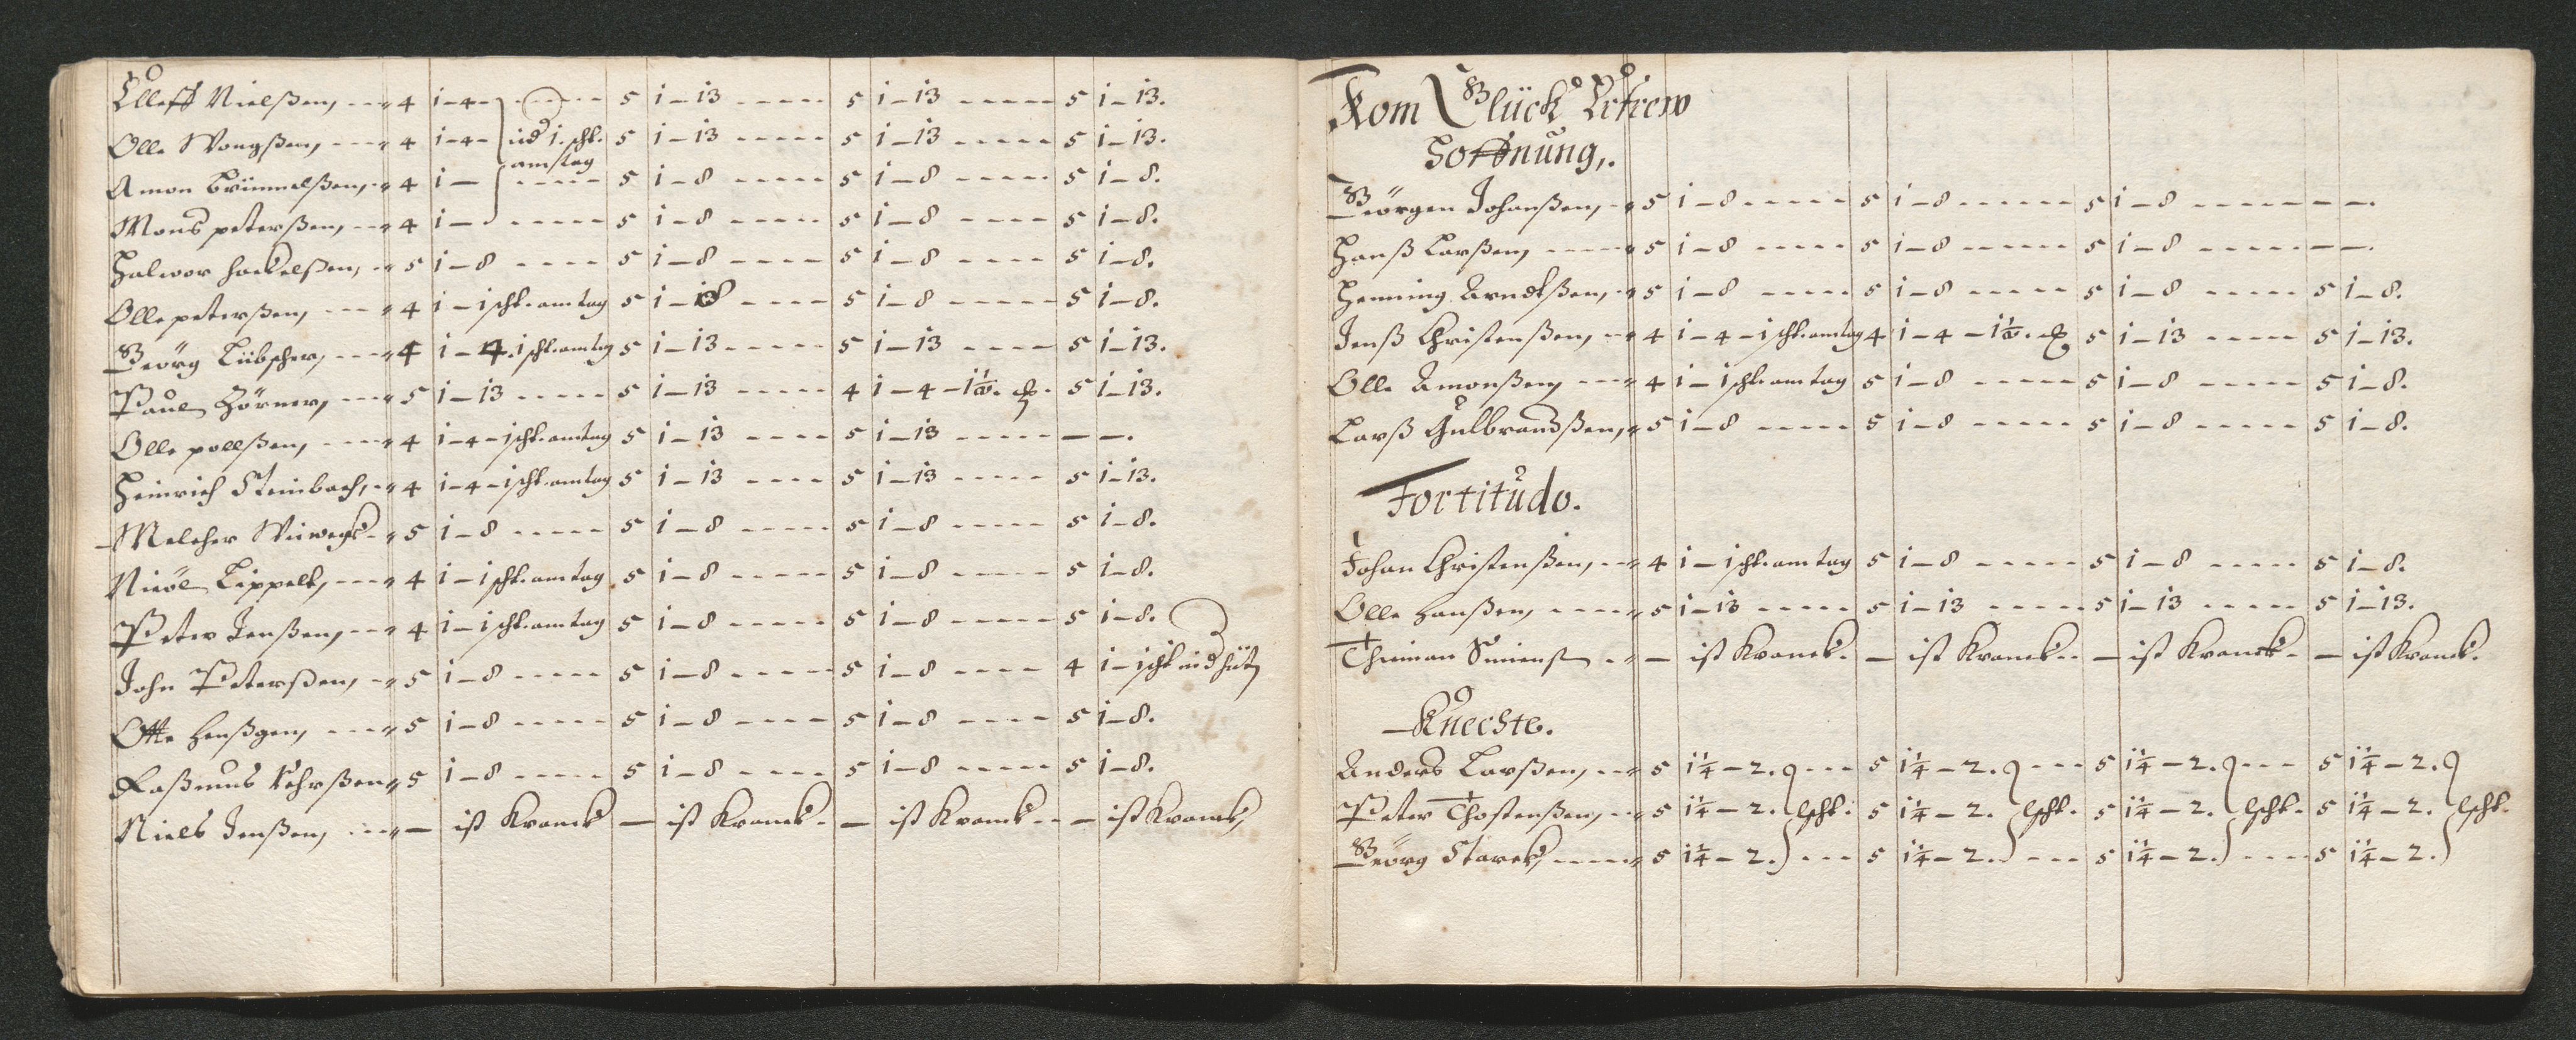 Elleff Nielßen, --- 4 i-4- ----- 5 i-13 ----- 5 i-13 ----- 5 i-13.
Olle Wongßen, --- 4 i-4- und i. schl. 5 i-13 ----- 5 i-13 ----- 5 i-13.
amstag
Amon Brümmelßen, 4 i- ----- 5 i-8 ----- 5 i-8 ----- 5 i-8.
Mons peterßen, -- 4 i- ----- 5 i-8 ----- 5 i-8 ----- 5 i-8.
Halwor hackelßen, 5 i-8 ---- 5 i-8 ----- 5 i-8 ---- 5 i-8.
Olle peterßen, --- 4 i-ischl. amtag 5 i-8 ---- 5 i-8 ----- 5 i-8.
Georg Lübscher, --- 4 i-4.ischl. amtag 5 i-13 ----- 5 i-13 ---- 5 i-13.
Paul Hörner, --- 5 i-13 ----- 5 i-13 ----- 4 i-4- 5 i-13.
Olle pollßen, ---- 4 i-4-ischl. amtag 5 i-13 ---- 5 i-13 ---- — —.
Heinrich Steinbach, 4 i-4-ischl. amtag 5 i-13 ---- 5 i-13 ----- 5 i-13.
Melcher - 5 i-8 ----- 5 i-8 ----- 5 i-8 ----- 5 i-8.
Nicol Lippelt, --- 4 i-ischl. amtag 5 i-8 ----- 5 i-8 ----- 5 i-8.
Peter Jenßen, --- 4 i-ischl. amtag 5 i-8 ----- 5 i-8 ----- 5 i-8.
John Peterßen, -- 5 i-8 ----- 5 i-8 ----- 5 i-8 ---- 4 i-ischl
Otte Henßgen, --- 5 i-8 ----- 5 i-8 ---- 5 i-8 ---- 5 i-8.
Raßmus 5 i-8 ----- 5 i-8 ---- 5 i-8 ----- 5 i-8.
Niels Jenßen, --- — ist Kranck — ist Kranck. — ist Kranck. - — ist Kranck,
Vom Glück
Hoffnung,.
Georgen Johanßen, - 5 i-8 ----- 5 i-8 ------ 5 i-8 ------ — —.
Hanß Larßen, ----- 5 i-8 ----- 5 i-8 ------ 5 i-8 ------ — —.
Henning Arndtßen, - 5 i-8 ----- 5 i-8 ----- 5 i-8 ----- 5 i-8.
Jenß Christenßen, -- 4 i-4-ischl. amtag 4 i-4- 5 i-13 ---- 5 i-13.
Olle Amonßen, --- 4 i-ischl. amtag 5 i-8 ----- 5 i-8 ----- 5 i-8.
Larß Gulbrandßen, 5 i-8 ----- 5 i-8 ----- 5 i-8 ----- 5 i-8.
Fortitudo.
Johan Christenßen, -- 4 i-ischl. amtag 5 i-8 ----- 5 i-8 ----- 5 i-8.
Olle Hanßen, ----- 5 i-13 ----- 5 i-13 ----- 5 i-13 ----- 5 i-13.
-- — ist Kranck. — ist Kranck. - — ist Kranck. — ist Kranck.
Knechte.
Anders Larßen, -- 5 i¼-2. --- 5 i¼-2. --- 5 i¼-2. --- 5 i¼-2.
Peter Thostenßen, -- 5 i¼-2. lschl. 5 i¼-2. lschl. 5 i¼-2. lschl. 5 i¼-2. lschl.
Georg Starck, ----- 5 i¼-2. --- 5 i¼-2. --- 5 i¼-2. ---- 5 i¼-2.